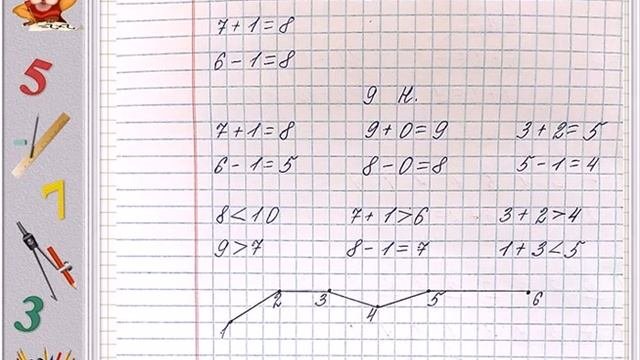 7 + 1 = 8
6 - 1 = 8
9 Н.
7 + 1 = 8 9 + 0 = 9 3 + 2 = 5
6 - 1 = 5 8 - 0 = 8 5 - 1 = 4
8 < 10 7 + 1 > 6 3 + 2 > 4
9 > 7 8 - 1 = 7 1 + 3 < 5
1 2 3 4 5 6
5
7
3